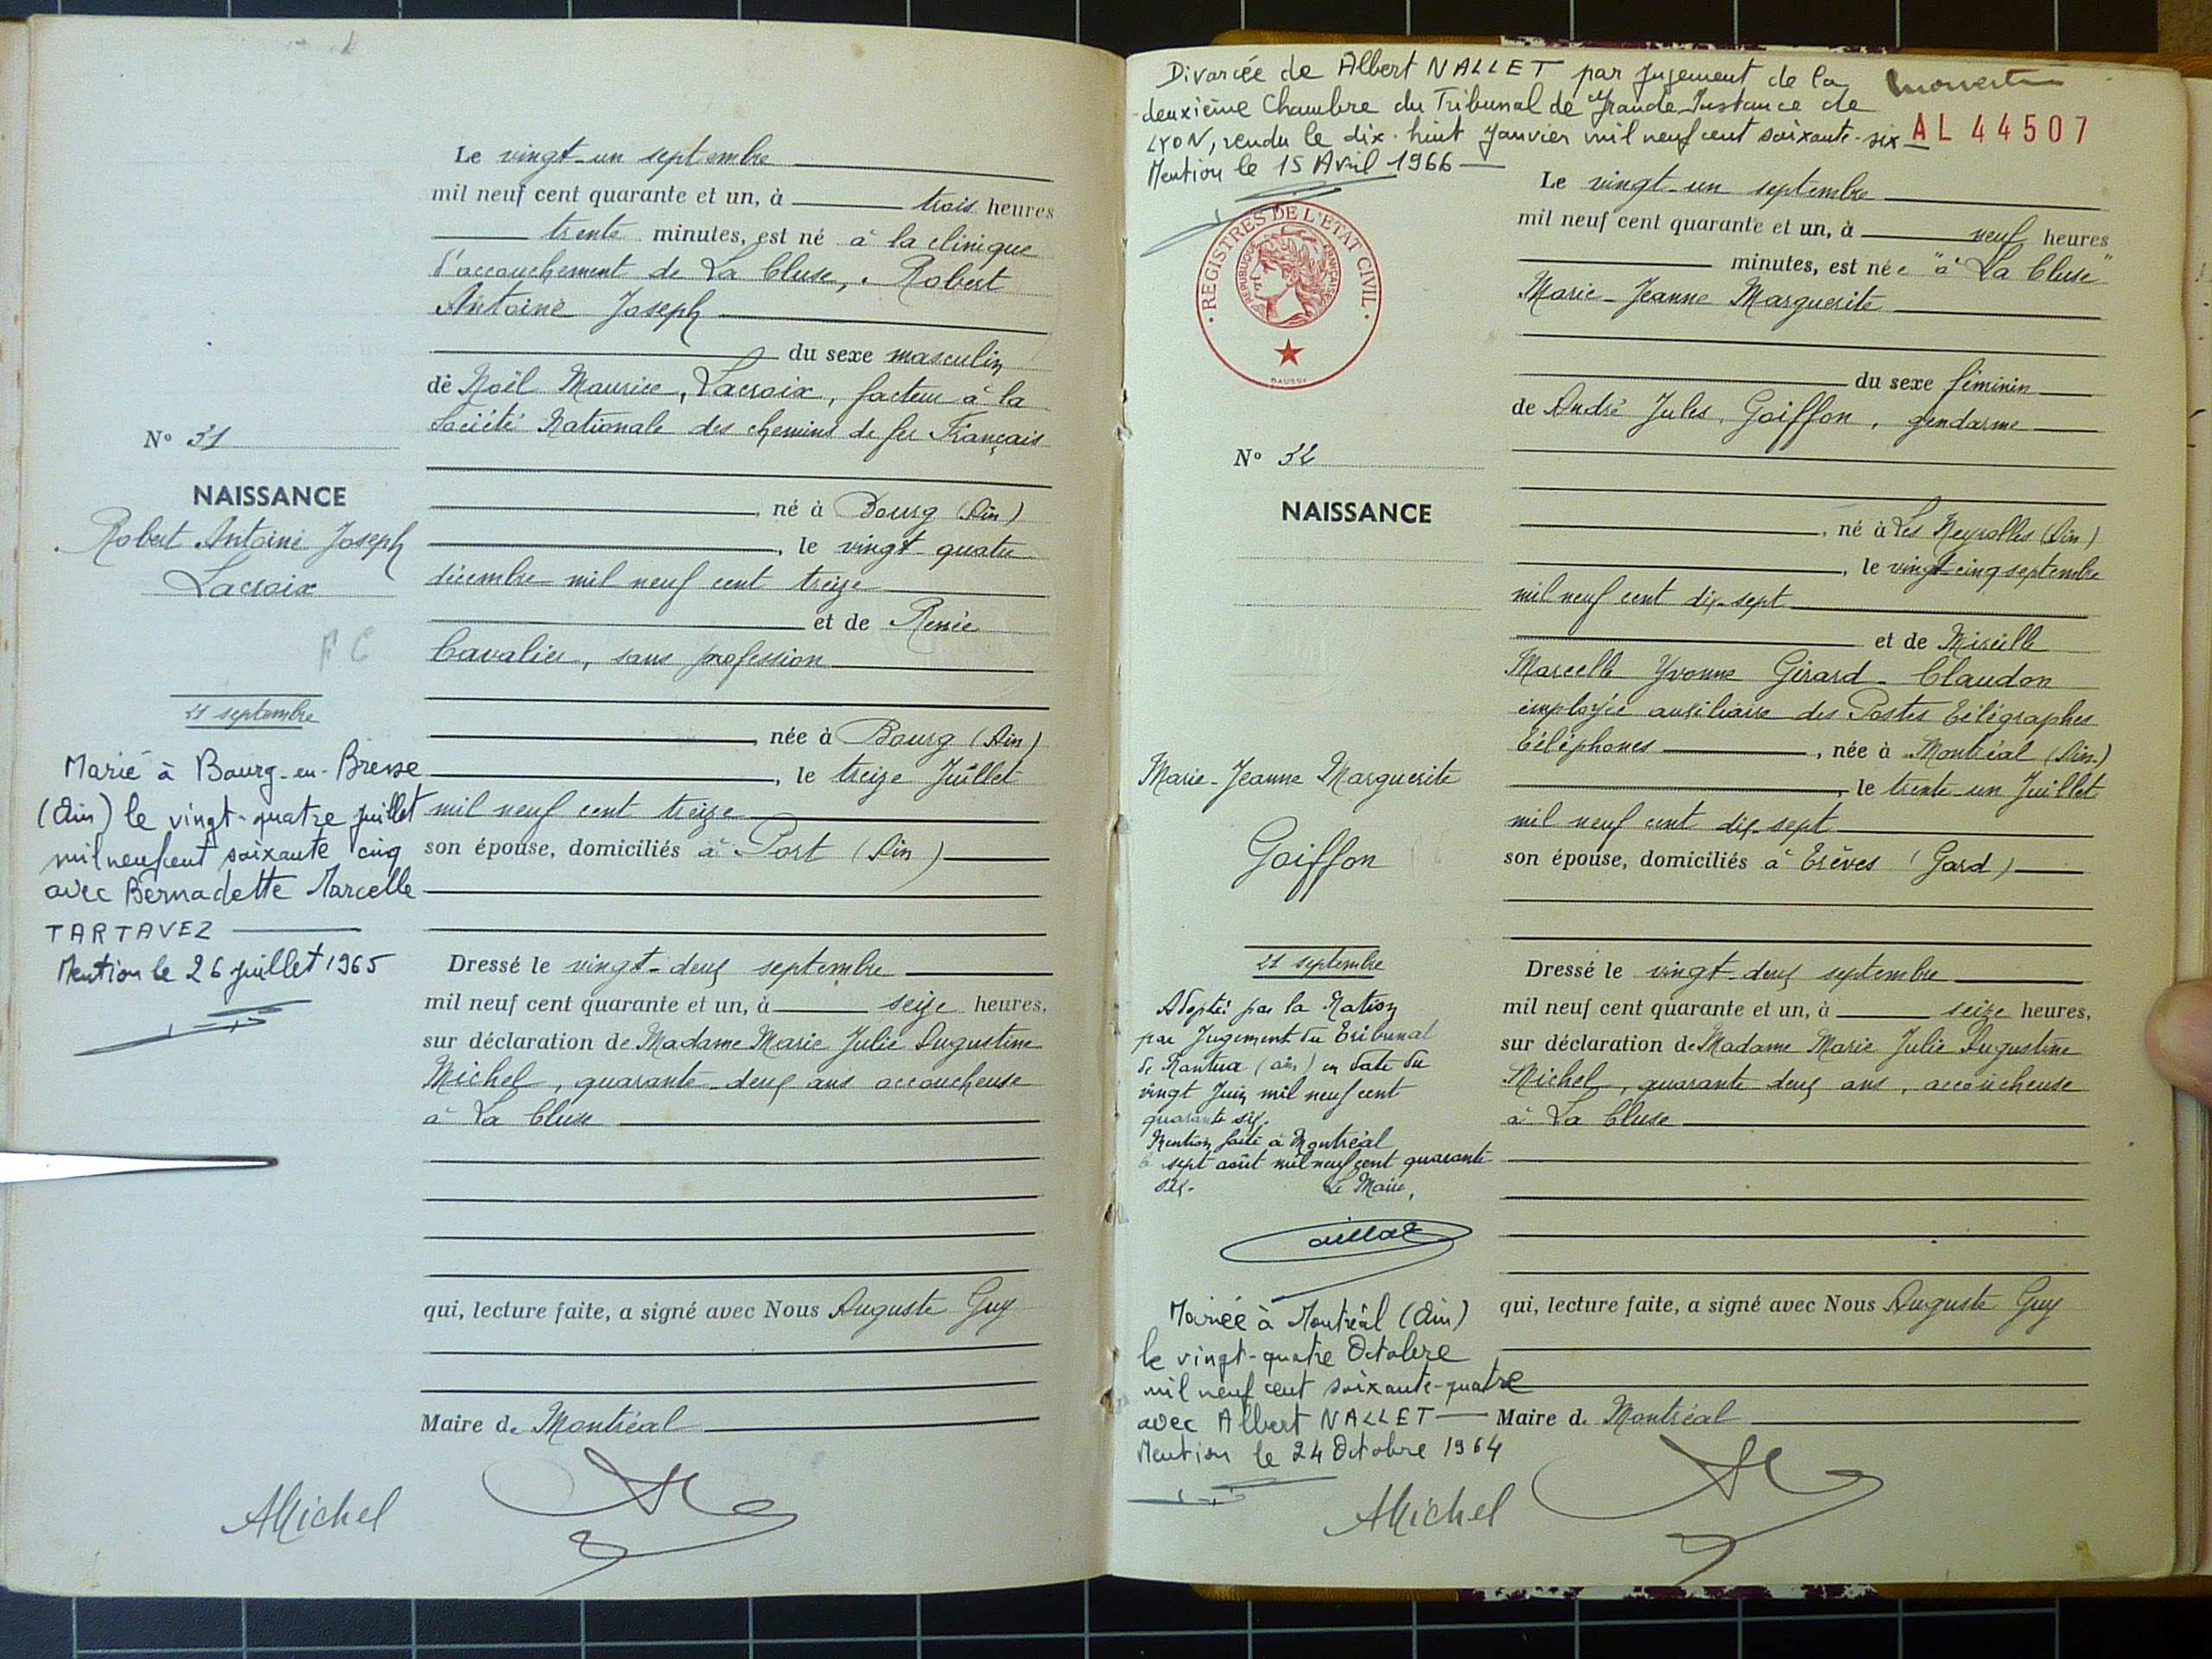 Le vingt-un septembre
mil neuf cent quarante et un, à trois heures
trente minutes, est né à la clinique
d'accouchement de La Cluse, Robert
Antoine Joseph
du sexe masculin
de Noël Maurice, Lacroix, facteur à la
Société Nationale des chemins de fer Français
N° 31
NAISSANCE
Robert Antoine Joseph
Lacroix
F C
21 septembre
Marié à Bourg-en-Bresse
(Ain) le vingt-quatre juillet
mil neuf cent soixante cinq
avec Bernadette Marcelle
TARTAVEZ
Mention le 26 juillet 1965
né à Bourg (Ain)
, le vingt quatre
décembre mil neuf cent treize
et de Renée
Cavalier, sans profession
, née à Bourg (Ain)
, le treize Juillet
mil neuf cent treize
son épouse, domiciliés à Port (Ain)
Dressé le vingt-deux septembre
mil neuf cent quarante et un, à seize heures,
sur déclaration de Madame Marie Julie Augustine
Michel, quarante deux ans accoucheuse
à La Cluse
qui, lecture faite, a signé avec Nous Auguste Guy
Maire de Montréal
AMichel
Divorcée de Albert NALLET par jugement de la
deuxième Chambre du Tribunal de Grande Instance de
LYON, rendu le dix-huit Janvier mil neuf cent soixante-six
Mention le 15 Avril 1966
AL 44507
REGISTRES DE L'ETAT CIVIL
REPUBLIQUE FRANÇAISE
DAUSSY
Le vingt-un septembre
mil neuf cent quarante et un, à neuf heures
minutes, est née "à La Cluse"
Marie-Jeanne Marguerite
du sexe féminin
de André Jules, Goiffon, gendarme
N° 32
NAISSANCE
Marie-Jeanne Marguerite
Goiffon
21 septembre
Adopté par la Nation
par Jugement du Tribunal
de Nantua (ain) en date du
vingt Juin mil neuf cent
quarante six.
Mention faite à Montréal
le sept août mil neuf cent quarante
six. Le Maire,
Mariée à Montréal (Ain)
le vingt-quatre Octobre
mil neuf cent soixante-quatre
avec Albert NALLET
Mention le 24 Octobre 1964
, né à Les Neyrolles (Ain)
, le vingt-cinq septembre
mil neuf cent dix-sept
et de Mireille
Marcelle Yvonne Girard-Claudon
employée auxiliaire des Postes Télégraphes
Téléphones , née à Montréal (Ain)
, le trente-un Juillet
mil neuf cent dix-sept
son épouse, domiciliés à Trèves (Gard)
Dressé le vingt-deux septembre
mil neuf cent quarante et un, à seize heures,
sur déclaration de Madame Marie Julie Augustine
Michel, quarante deux ans, accoucheuse
à La Cluse
qui, lecture faite, a signé avec Nous Auguste Guy
Maire de Montréal
AMichel